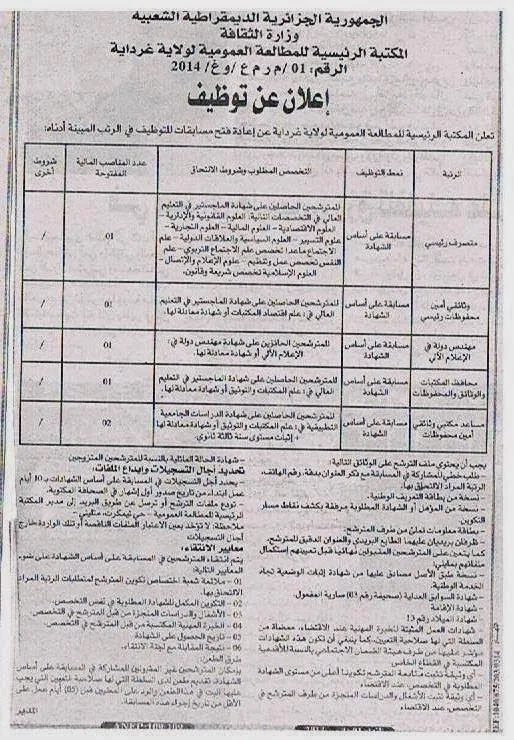 الجمهورية الجزائرية الديمقراطية الشعبية
وزارة الثقافة
المكتبة الرئيسية للمطالعة العمومية لولاية غرداية
الرقم: 01/م ر م ع/و غ/2014
إعلان عن توظيف
تعلن المكتبة الرئيسية للمطالعة العمومية لولاية غرداية عن إعادة فتح مسابقات للتوظيف في الرتب المبينة أدناه:
الرتبة
نمط التوظيف
التخصص المطلوب وشروط الالتحاق
عدد المناصب المالية المفتوحة
شروط أخرى
متصرف رئيسي
مسابقة على أساس الشهادة
للمترشحين الحاصلين على شهادة الماجستير في التعليم
العالي في التخصصات التالية: العلوم القانونية والإدارية -
العلوم الاقتصادية - العلوم المالية - العلوم التجارية -
علوم التسيير - العلوم السياسية والعلاقات الدولية - علم
الاجتماع ماعدا تخصص علم الاجتماع التربوي - علم
النفس تخصص عمل وتنظيم - علوم الإعلام والإتصال -
العلوم الإسلامية تخصص شريعة وقانون.
01
/
وثائقي أمين محفوظات رئيسي
مسابقة على أساس الشهادة
للمترشحين الحاصلين على شهادة الماجستير في التعليم
العالي في: علم اقتصاد المكتبات أو شهادة معادلة لها.
01
/
مهندس دولة في الإعلام الآلي
مسابقة على أساس الشهادة
للمترشحين الحائزين على شهادة مهندس دولة في:
الإعلام الآلي أو شهادة معادلة لها.
01
/
محافظ المكتبات والوثائق والمحفوظات
مسابقة على أساس الشهادة
للمترشحين الحاصلين على شهادة الماجستير في التعليم
العالي في: علم المكتبات والتوثيق أو شهادة معادلة لها.
01
/
مساعد مكتبي وثائقي أمين محفوظات
مسابقة على أساس الشهادة
للمترشحين الحاصلين على شهادة الدراسات الجامعية
التطبيقية في: علم المكتبات والتوثيق أو شهادة معادلة لها
+ إثبات مستوى سنة ثالثة ثانوي.
02
/
يجب أن يحتوي ملف الترشح على الوثائق التالية:
- طلب خطي للمشاركة في المسابقة مع ذكر العنوان بدقة، رقم الهاتف،
الرتبة المراد الالتحاق بها.
- نسخة من بطاقة التعريف الوطنية.
- نسخة من المؤهل أو الشهادة المطلوبة مرفقة بكشف نقاط مسار
التكوين
- بطاقة معلومات تملأ من طرف المترشح.
- ظرفان بريديان عليهما الطابع البريدي والعنوان الدقيق للمترشح.
كما يتعين على المترشحين المقبولين نهائيا قبل تعيينهم إستكمال
ملفاتهم بمايلي:
- نسخة طبق الأصل مصادق عليها من شهادة إثبات الوضعية تجاه
الخدمة الوطنية.
- شهادة السوابق العدلية (صحيفة رقم 03) سارية المفعول.
- شهادة الإقامة
- شهادة الميلاد رقم 13
- شهادات العمل المثبتة للخبرة المهنية عند الاقتضاء، ممضاة من
السلطة التي لها صلاحية التعيين، كما ينبغي أن تكون هذه الشهادات
مؤشر عليها من طرف هيئة الضمان الاجتماعي بالنسبة للأقدمية
المكتسبة في القطاع الخاص
- أي وثيقة تثبت متابعة المترشح تكوينا أعلى من مستوى الشهادة
المطلوبة في التخصص، عند الاقتضاء
- أي وثيقة تثبت الأشغال والدراسات المنجزة من طرف المترشح في
التخصص، عند الاقتضاء
- شهادة الحالة العائلية بالنسبة للمترشحين المتزوجين
تحديد آجال التسجيلات وإيداع الملفات:
- يحدد أجل التسجيلات في المسابقة على أساس الشهادات بـ 10 أيام
عمل ابتداء من تاريخ صدور أول إشهار في الصحافة المكتوبة.
- تودع ملفات الترشح أو ترسل عن طريق البريد إلى مدير المكتبة
الرئيسية للمطالعة العمومية - حي تيمكرت، متليلي
ملاحظة: لا تؤخذ بعين الاعتبار الملفات الناقصة أو تلك الواردة خارج
آجال التسجيلات
معايير الانتقاء:
يتم انتقاء المترشحين في المسابقة على أساس الشهادة على ضوء
المعايير التالية:
01 - ملائمة شعبة اختصاص تكوين المترشح لمتطلبات الرتبة المراد
الالتحاق بها.
02 - التكوين المكمل للشهادة المطلوبة في نفس التخصص.
03 - الأشغال والدراسات المنجزة من قبل المترشح في التخصص.
04 - الخبرة المهنية المكتسبة من قبل المترشح في التخصص.
05 - تاريخ الحصول على الشهادة
06 - نتيجة المقابلة مع لجنة الانتقاء.
طرق الطعن:
بإمكان المترشحين غير المقبولين للمشاركة في المسابقة على أساس
الشهادة، تقديم طعن لدى السلطة التي لها صلاحية التعيين التي يجب
عليها البت في هذا الطعن والرد على المعنيين قبل (05) أيام عمل على
الأقل من تاريخ إجراء هذه المسابقة.
المدير